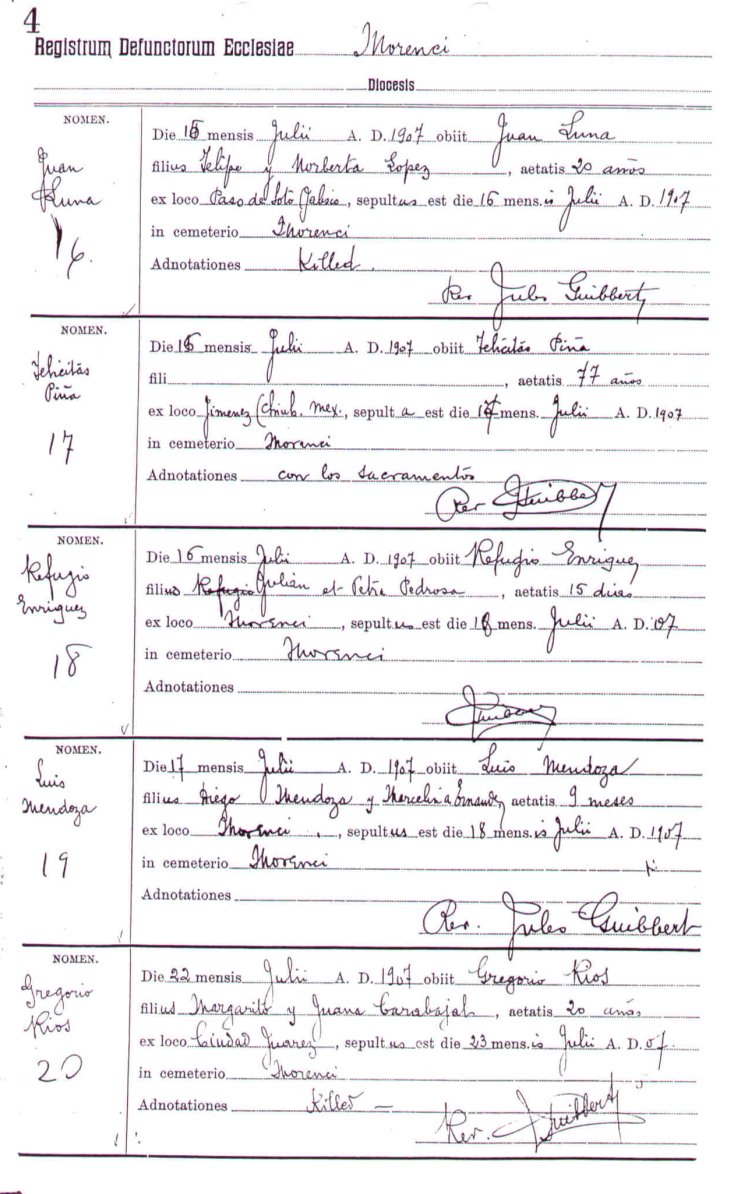 4
Registrum Defunctorum Ecclesiae Morenci
Diocesis
NOMEN.
Juan
Luna
16.
Die 15 mensis Julii A. D. 1907 obiit Juan Luna
filius Felipe y Norberta Lopez, aetatis 20 años
ex loco Paso de Soto (Jalisco, sepultus est die 16 mens.is Julii A. D. 1907
in cemeterio Morenci
Adnotationes Killed.
Rev Jules Guibbert
NOMEN.
Felicitás
Piña
17
Die 15 mensis Julii A. D. 1907 obiit Felicitás Piña
fili , aetatis 77 años
ex loco Jimenez (Chiuh. Mex., sepulta est die 17 mens. Julii A. D. 1907
in cemeterio Morenci
Adnotationes con los sacramentos
Rev Guibbert
NOMEN.
Refugio
Enriquez
18
Die 16 mensis Julii A. D. 1907 obiit Refugio Enriquez
filius Refugio Julián et Petra Pedrosa, aetatis 15 dias
ex loco Morenci, sepultus est die 18 mens. Julii A. D. 07
in cemeterio Morenci
Adnotationes
Guibbert
NOMEN.
Luis
Mendoza
19
Die 17 mensis Julii A. D. 1907 obiit Luis Mendoza
filius Diego Mendoza y aetatis 9 meses
ex loco Morenci, sepultus est die 18 mens.is Julii A. D. 1907
in cemeterio Morenci
Adnotationes
Rev. Jules Guibbert
NOMEN.
Gregorio
Rios
20
Die 22 mensis Julii A. D. 1907 obiit Gregorio Rios
filius Margarito y Juana Carabajal, aetatis 20 años
ex loco Ciudad Juarez, sepultus est die 23 mens.is Julii A. D. 07.
in cemeterio Morenci
Adnotationes Killed —
Rev. Guibbert